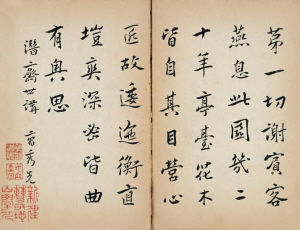 第一切謝賓客
燕息此園幾二
十年亭臺花木
皆自其目營心
匠故逶迤衡直
塏爽深密皆曲
有奧思
潛齋世講 曹秀先
新建